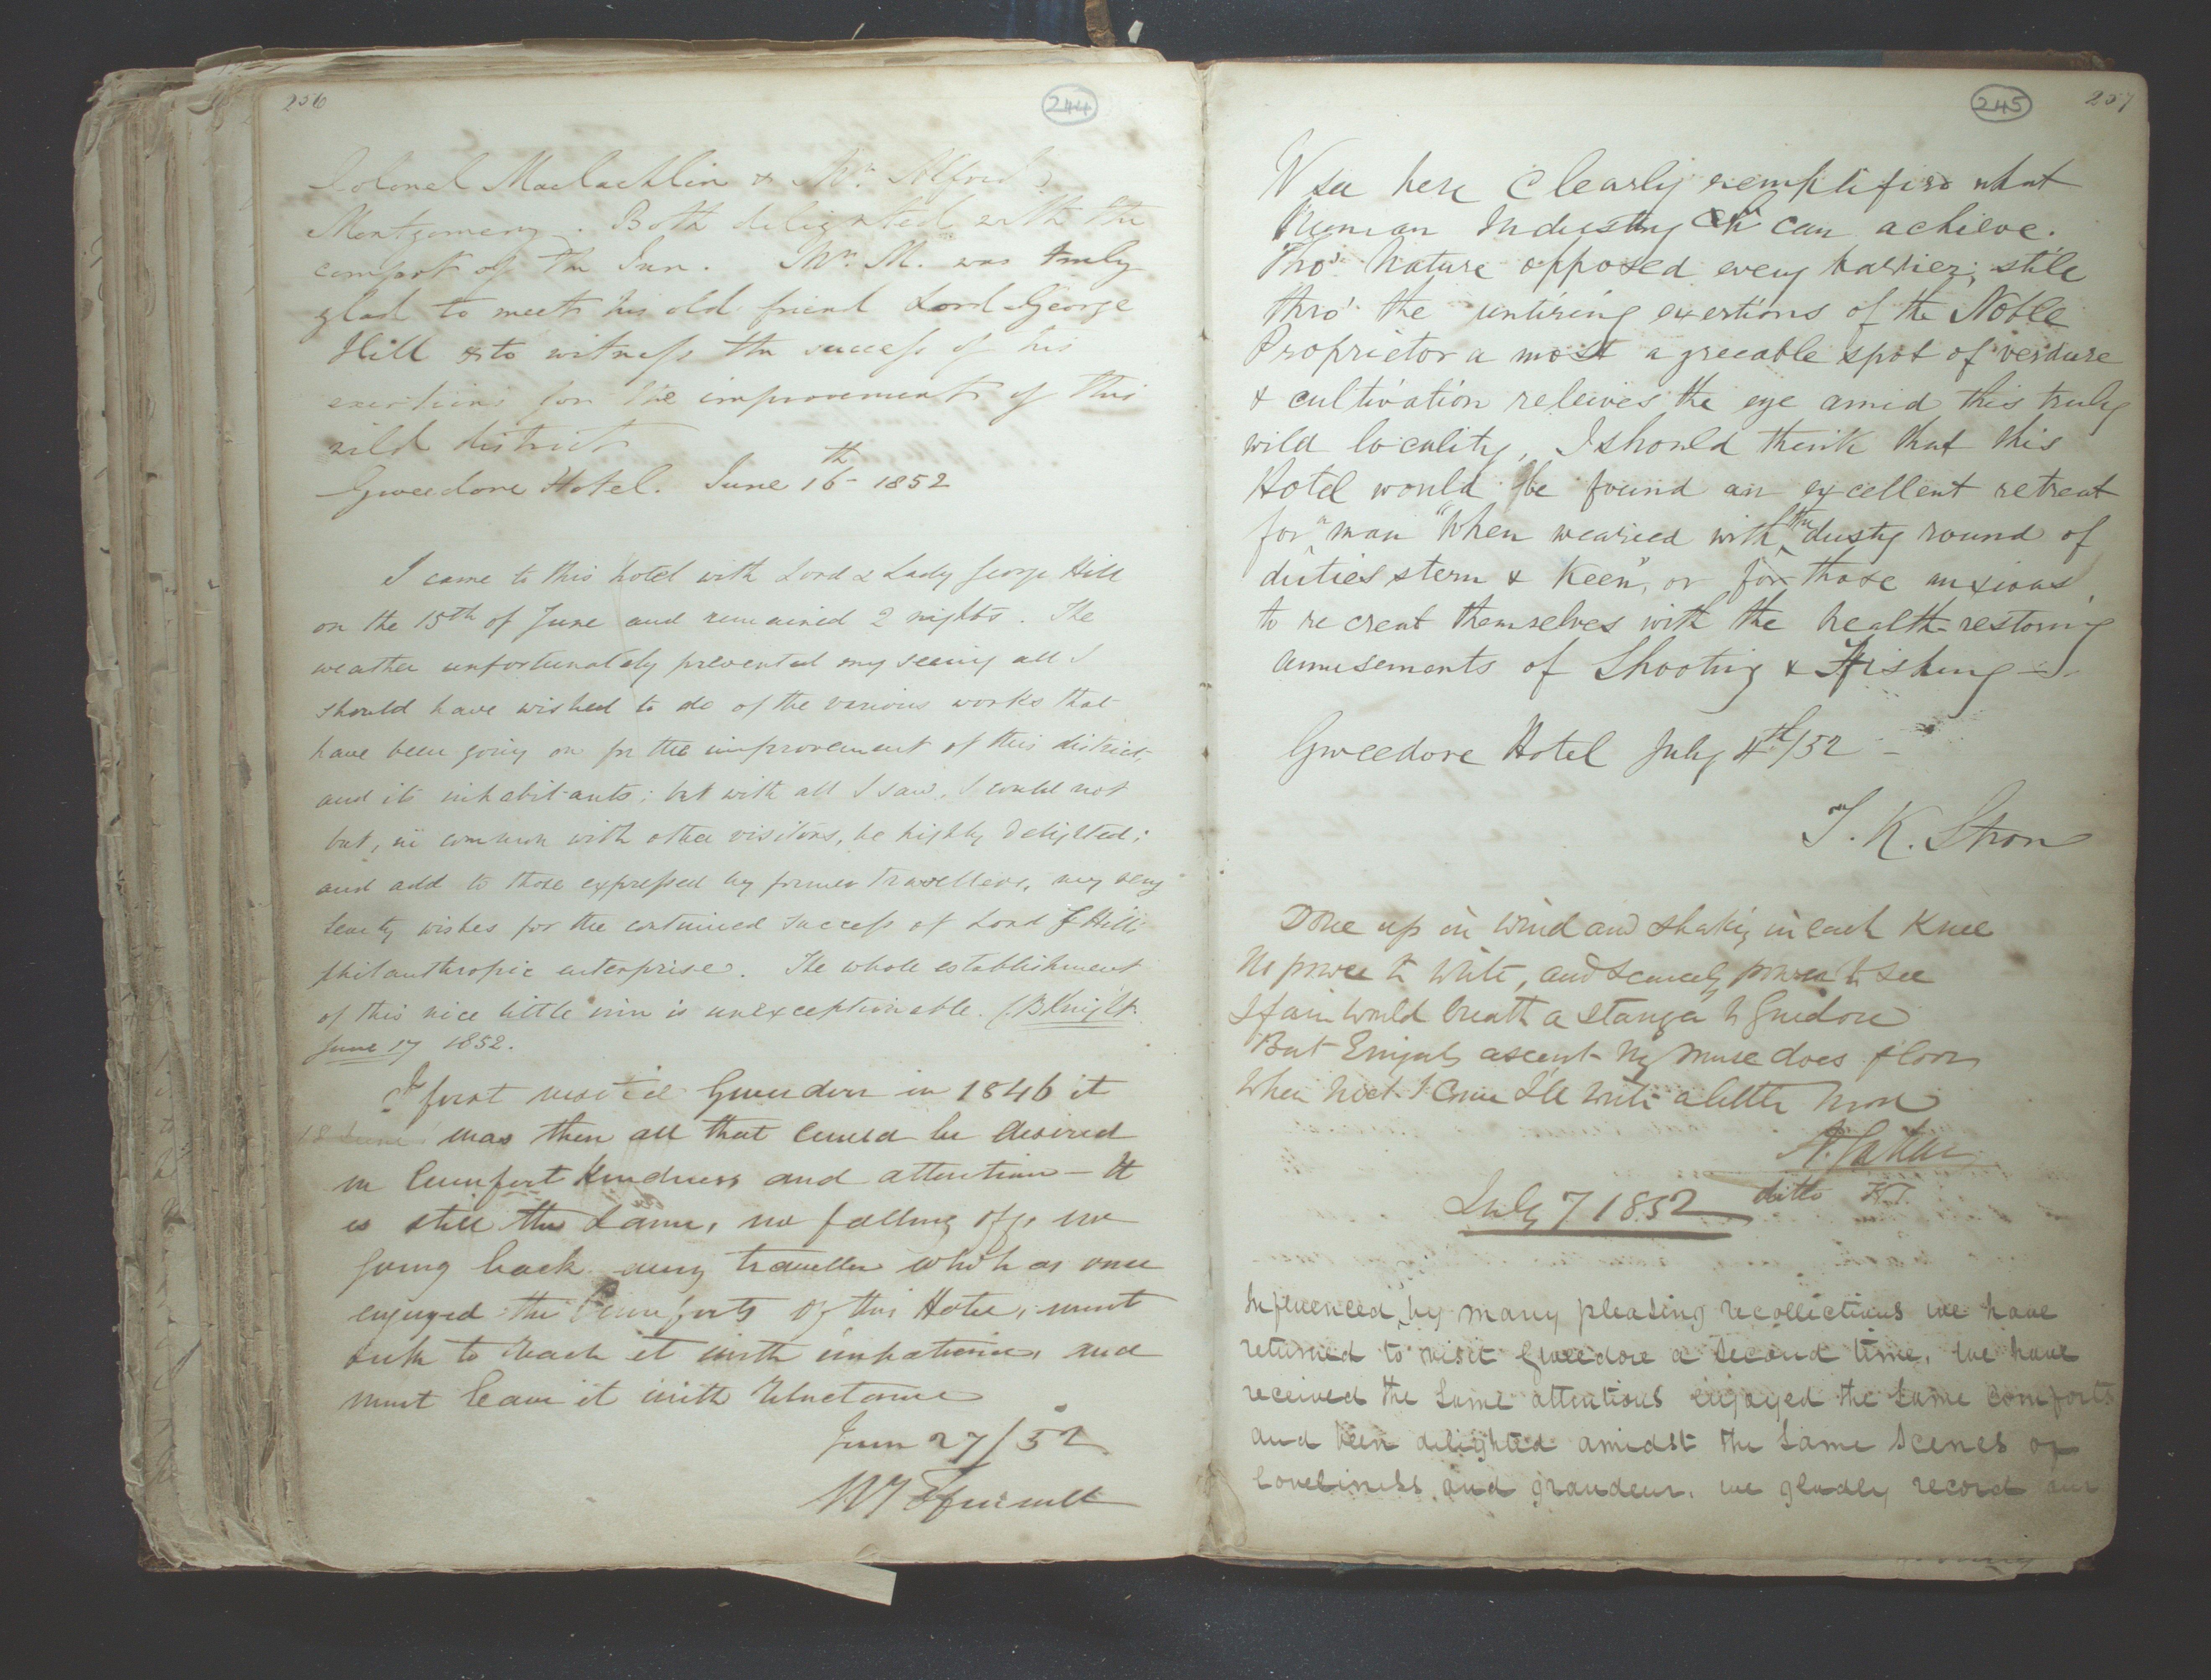 256
244
Colonel Maclachlin & Mr. Alfred
Montgomery. Both delighted with the
comfort of the Inn. Mr. M. was truly
glad to meet his old friend Lord George
Hill & to witness the success of his
exertions for the improvement of this
wild district
Gweedore Hotel. June 16th 1852
I came to this hotel with Lord & Lady George Hill
on the 15th of June and remained 2 nights. The
weather unfortunately prevented my seeing all I
should have wished to do of the various works that
have been going on for the improvement of this district,
and its inhabitants; but with all I saw, I could not
but, in common with other visitors, be highly delighted;
and add to those expressed by former travellers, my very
hearty wishes for the continued success of Lord G Hill's
philanthropic enterprise. The whole establishment
of this nice little inn is unexceptionable.
June 17 1852.
I first visited Gweedore in 1846 it
18 June was then all that could be desired
in Comfort Kindness and attention - It
is still the same, no falling off, no
going back. every traveller which as once
enjoyed the Comforts of this Hotel, must
to reach it with impatience, and
must leave it with reluctance
June 27/52
245
257
We see here Clearly exemplified what
Human Industry can achieve.
Tho' Nature opposed every barrier; still
thro' the untiring exertions of the Noble
Proprietor a most agreeable spot of verdure
& cultivation releives the eye amid this truly
wild locality, I should think that this
Hotel would be found an excellent retreat
for a man "When wearied with the dusty round of
duties stern & Keen", or for those anxious
to re creat themselves with the health-restoring
amusements of Shooting & Fishing -
Gweedore Hotel July 4th/52 -
T. K. Stron
Done up in Wind and Shaky in each Knee
No power to Write, and Scarcely power to See
I fain would breath a Stanza to Guedore
But Erigals ascent My Muse does floor
When Next I Come I'll Write a little More
ditto
July 7 1852
Influenced by many pleasing recollections we have
returned to visit Gweedore a Second time. We have
received the Same attentions enjoyed the Same comforts
and been delighted amidst the Same Scenes of
loveliness and grandeur. we gladly record our